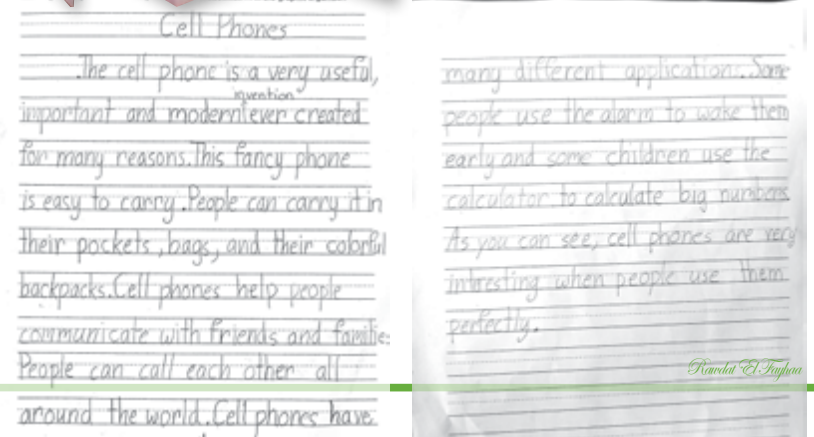 Cell Phones
The cell phone is a very useful,
invention
important and modern ever created
for many reasons. This fancy phone
is easy to carry. People can carry it in
their pockets, bags, and their colorful
backpacks. Cell phones help people
communicate with friends and families
People can call each other all
around the world. Cell phones have
many different applications. Some
people use the alarm to wake them
early and some children use the
calculator to calculate big numbers
As you can see, cell phones are very
intresting when people use them
perfectly.
Rawdat El Fayhaa